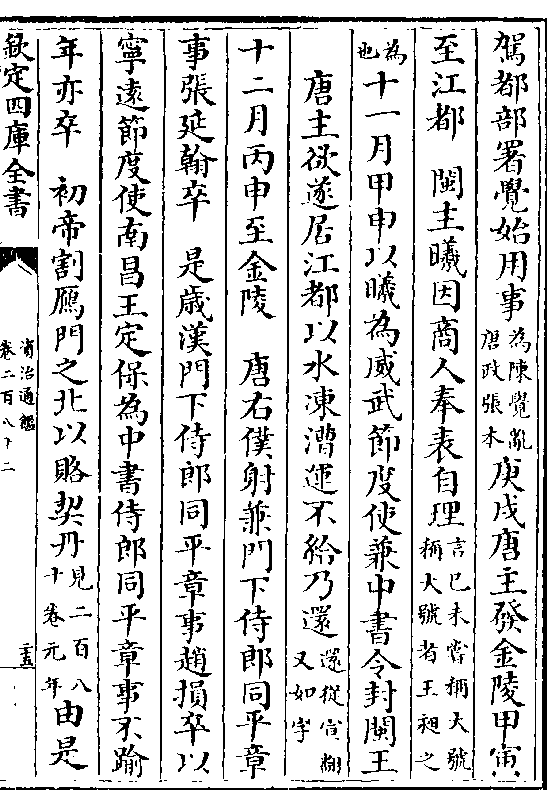 駕都部署覺始用事為陳覺亂唐政張本庚戌唐主發金陵甲寅
至江都　閩主曦因商人奉表自理言已未嘗稱大號稱大號者王昶之
為也十一月甲申以曦為威武節度使兼中書令封閩王
唐主欲遂居江都以水凍漕運不給乃還還從宣翻又如字
十二月丙申至金陵　唐右僕射兼門下侍郎同平章
事張延翰卒　是歲漢門下侍郎同平章事趙損卒以
寧遠節度使南昌王定保為中書侍郎同平章事不踰
年亦卒　初帝割鴈門之北以賂契丹見二百八十卷元年由是
欽定四庫全書
資治通鑑
卷二百八十二
三五